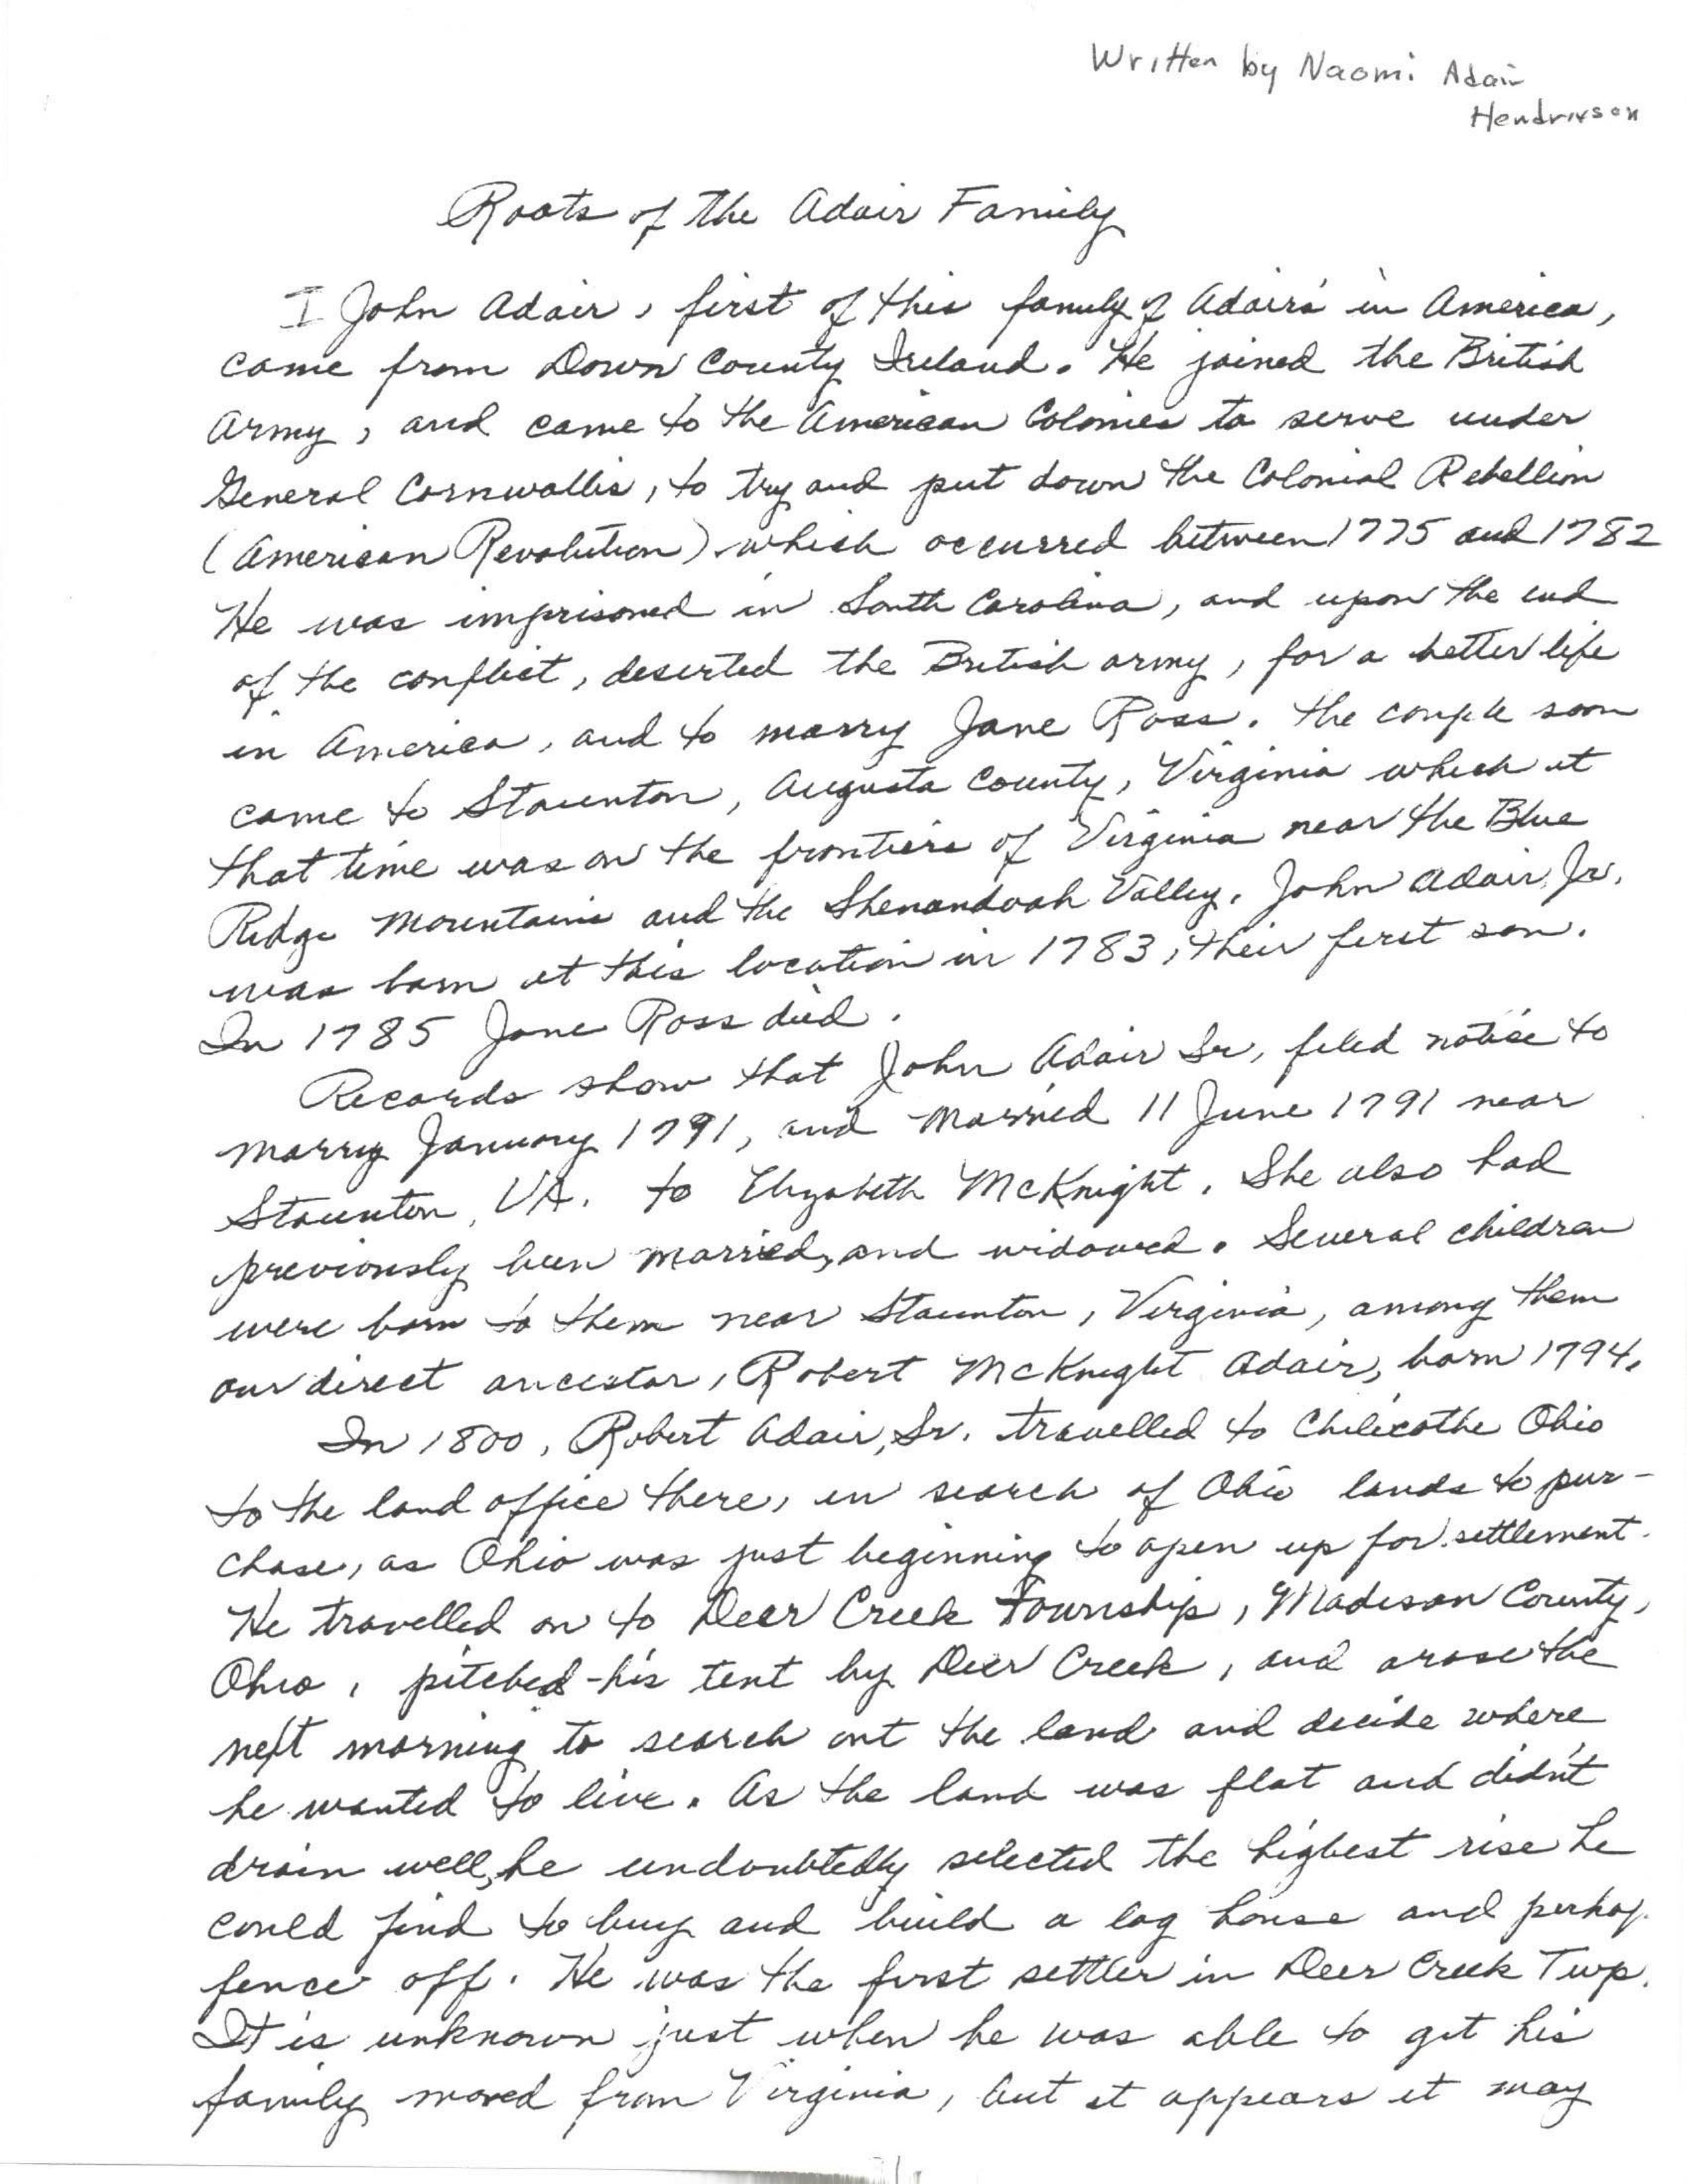 Written by Naomi Adair
Hendrixson
Roots of the Adair Family
I John Adair, first of this family of Adairs in America,
came from Down County Ireland. He joined the British
Army, and came to the American Colonies to serve under
General Cornwallis, to try and put down the Colonial Rebellion
(American Revolution) which occurred between 1775 and 1782
He was imprisoned in South Carolina, and upon the end
of the conflict, deserted the British army, for a better life
in America, and to marry Jane Ross. The couple soon
came to Staunton, Augusta County, Virginia which at
that time was on the frontiers of Virginia near the Blue
Ridge Mountains and the Shenandoah Valley. John Adair, Jr.
was born at this location in 1783, their first son.
In 1785 Jane Ross died.
Records show that John Adair Sr, filed notice to
marry January 1791, and married 11 June 1791 near
Staunton, VA. to Elizabeth McKnight. She also had
previously been married, and widowed. Several children
were born to them near Staunton, Virginia, among them
our direct ancestor, Robert McKnight Adair, born 1794.
In 1800, Robert Adair, Sr. travelled to Chilicothe Ohio
to the land office there, in search of Ohio lands to pur-
chase, as Ohio was just beginning to open up for settlement.
He travelled on to Deer Creek Township, Madison County,
Ohio, pitched his tent by Deer Creek, and arose the
next morning to search out the land and decide where
he wanted to live. As the land was flat and didn't
drain well, he undoubtedly selected the highest rise he
could find to buy and build a log house and perhap.
fence off. He was the first settler in Deer Creek Twp.
It is unknown just when he was able to get his
family moved from Virginia, but it appears it may